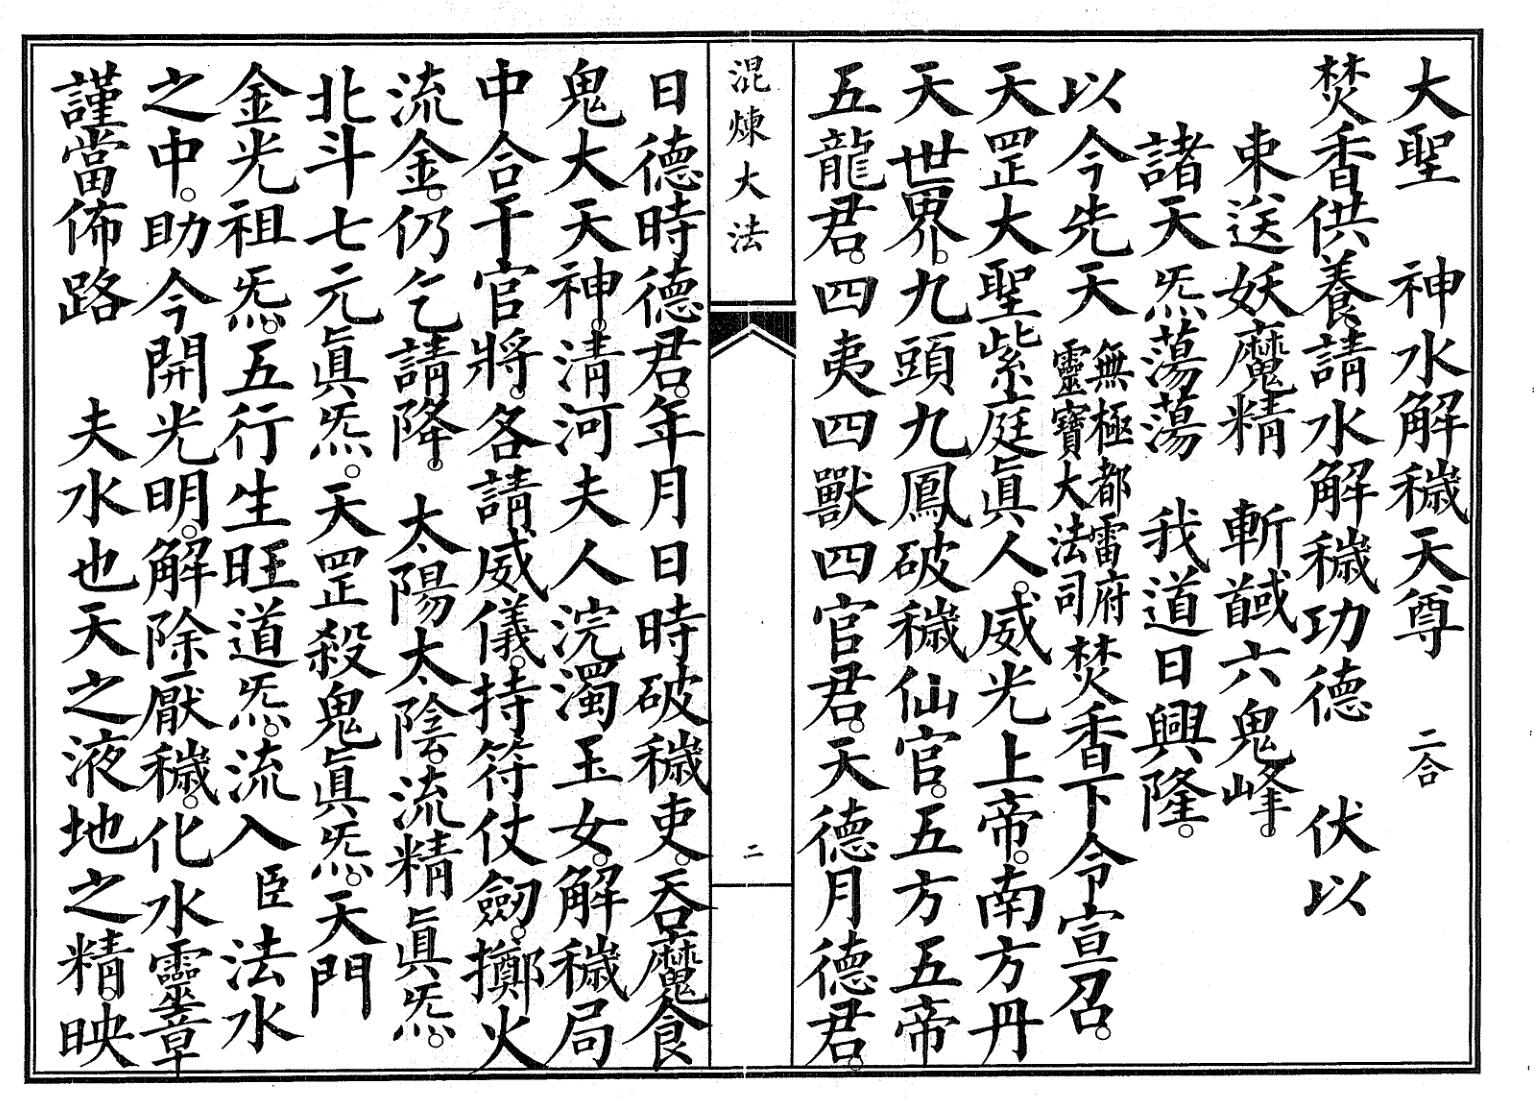 大聖　神水解穢天尊　二合
焚香供養請水解穢功德　伏以
束送妖魔精　斬馘六鬼峰。
諸天炁蕩蕩　我道日興隆。
以今先天無極都雷府靈寶大法司焚香下令宣召。
天罡大聖紫庭眞人。威光上帝。南方丹
天世界。九頭九鳳破穢仙官。五方五帝
五龍君。四夷四獸四官君。天德月德君。
混煉大法
二
日德時德君。年月日時破穢吏。吞魔食
鬼大天神。清河夫人浣濁玉女。解穢局
中合干官將。各請威儀。持符仗劒。擲火
流金。仍乞請降。太陽太陰。流精眞炁。
北斗七元眞炁。天罡殺鬼眞炁。天門
金光祖炁。五行生旺道炁。流入臣法水
之中。助今開光明。解除厭穢。化水靈章
謹當佈路　夫水也天之液地之精。映